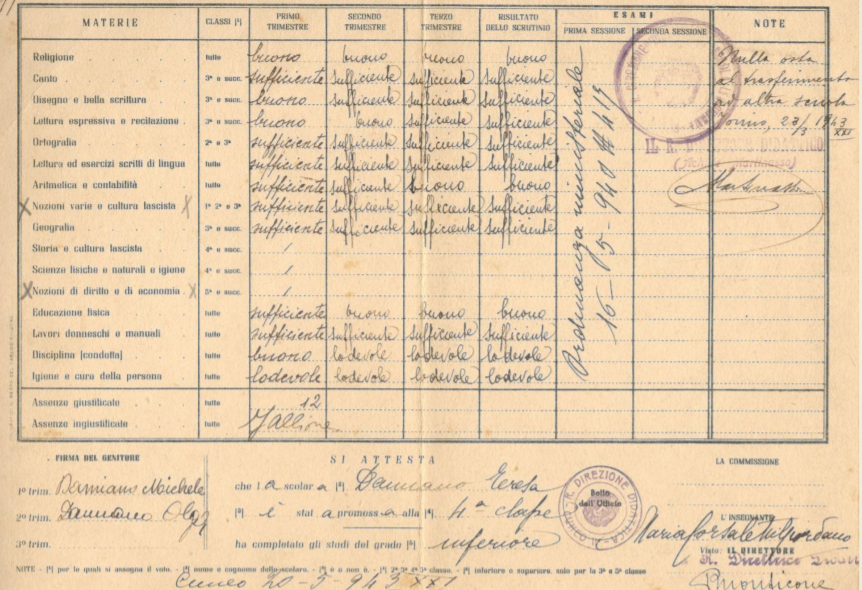 MATERIE CLASSI [¹] PRIMO TRIMESTRE SECONDO TRIMESTRE TERZO TRIMESTRE RISULTATO DELLO SCRUTINIO ESAMI PRIMA SESSIONE SECONDA SESSIONE NOTE
Religione tutte buono buono buono buono
Canto 3ª e succ. sufficiente sufficiente sufficiente sufficiente
Disegno e bella scrittura 3ª e succ. buono sufficiente sufficiente sufficiente
Lettura espressiva e recitazione 3ª e succ. buono buono sufficiente sufficiente
Ortografia 2ª e 3ª sufficiente sufficiente sufficiente sufficiente
Lettura ed esercizi scritti di lingua tutte sufficiente sufficiente sufficiente sufficiente
Aritmetica e contabilità tutte sufficiente sufficiente buono buono
Nozioni varie e cultura fascista 1ª 2ª e 3ª sufficiente sufficiente sufficiente sufficiente
Geografia 3ª e succ. sufficiente sufficiente sufficiente sufficiente
Storia e cultura fascista 4ª e succ. /
Scienze fisiche e naturali e igiene 4ª e succ. /
Nozioni di diritto e di economia 5ª e succ. /
Educazione fisica tutte sufficiente buono buono buono
Lavori donneschi e manuali tutte sufficiente sufficiente sufficiente sufficiente
Disciplina [condotta] tutte buono lodevole lodevole lodevole
Igiene e cura della persona tutte lodevole lodevole lodevole lodevole
Assenze giustificate tutte 12
Assenze ingiustificate tutte
Ordinanza ministeriale
16-5-940 # 413
Nulla osta
al trasferimento
ad altra scuola
23/3 1943
XXI
FIRMA DEL GENITORE
1º trim. Damiano Michele
2º trim. Damiano
3º trim.
SI ATTESTA
che la scolara [²] Damiano Teresa
[³] è stata promossa alla [⁴] 4ª classe
ha completato gli studi del grado [⁵] inferiore
Bollo
dell'Ufficio
R. DIREZIONE DIDATTICA
LA COMMISSIONE
L'INSEGNANTE
Maria
Visto: IL DIRETTORE
NOTE - [¹] per le quali si assegna il voto. - [²] nome e cognome dello scolaro. - [³] è o non è. - [⁴] 2ª 3ª 4ª 5ª classe. - [⁵] inferiore o superiore, solo per la 3ª e 5ª classe
Cuneo 20-5-943 XXI